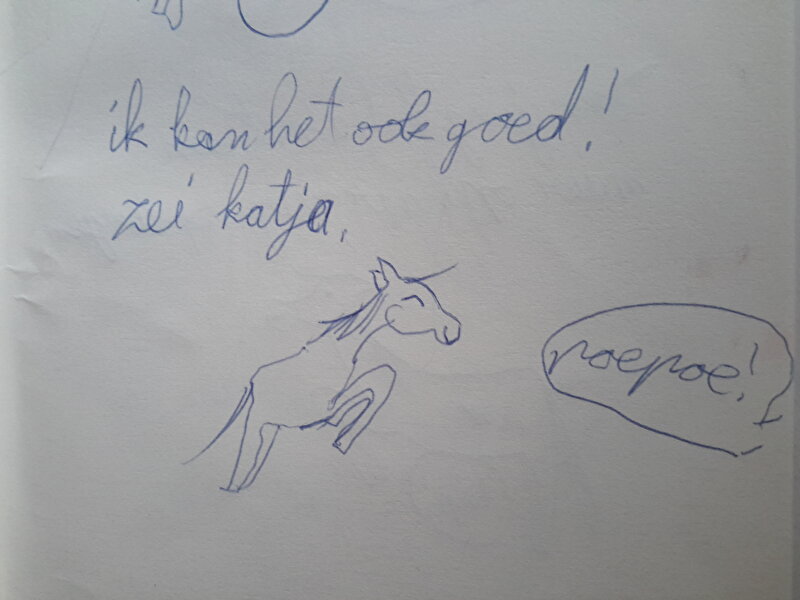 ik kan het ook goed!
zei katja,
poepoe!